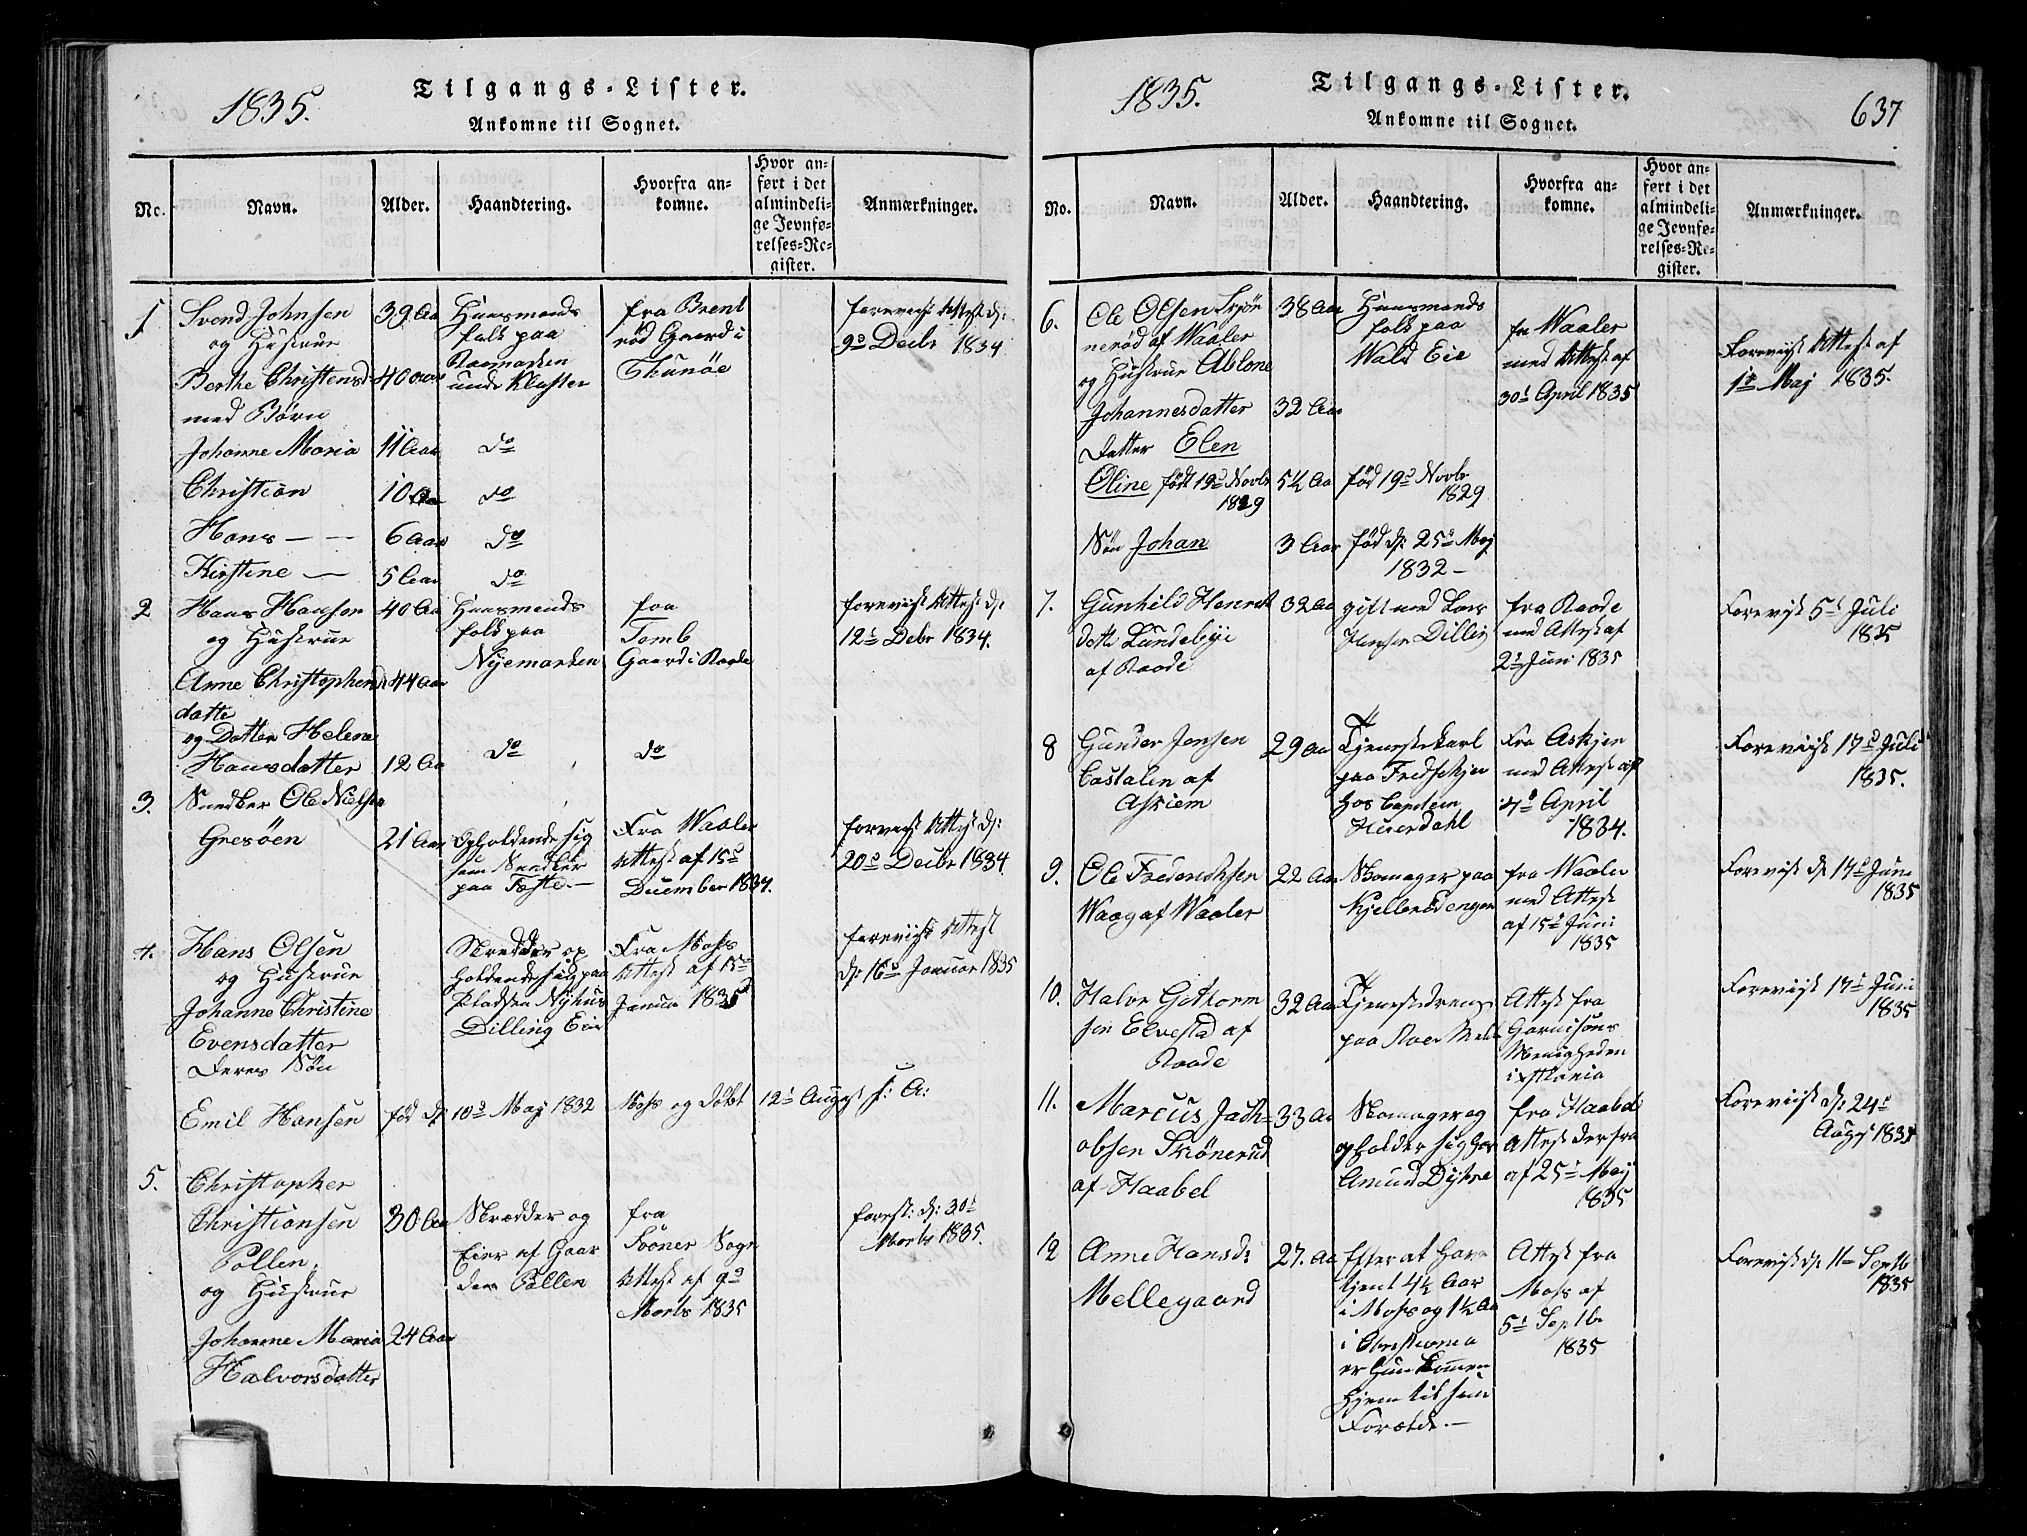 1835.
Tilgangs-Lister.
Ankomne til Sognet.
No.
Navn.
Alder.
Haandtering.
Hvorfra an-
komne.
Hvor an-
ført i det
almindeli-
ge Jevnfø-
relses-Re-
gister.
Anmærkninger.
1
Svend Johnsen
og Hustrue
Berthe Christensd
med Børn
Johanne Maria
Christian
Hans — —
Kirstine —
39 Aar
40 Aar
11 Aar
10 Aar
6 Aar
5 Aar
Huusmands
folk paa
under Kloster
do
do
do
do
fra Brent
rød Gaard i
Thunøe
foreviist Attest d:
9de Decbr 1834
2
Hans Hansen
og Hustrue
Anne Christophers
datter
og Datter Helene
Hansdatter
40 Aar
44 Aar
12 Aar
Huusmands
folk paa
Nyemarken
do
fra
Tomb
Gaard i Raade
do
foreviist Attest d:
12te Debr 1834.
3.
Snedker Ole Nielsen
Gresøen
21 Aar
Opholdende sig
som Snedker
paa
Fra Waaler
Attest af 15de
December 1834.
foreviist Attest d:
20de Decbr 1834.
4.
Hans Olsen
og Hustrue
Johanne Christine
Evensdatter
Deres Søn
Emil Hansen
Skredder op
holdende sig paa
Pladsen Nyhus
Dilling Eie
Fra Moss
Attest af 15de
Januar 1835
foreviist Attest
d: 16de Januar 1835
fød d: 10de May 1832 Moss og døbt 12te August s: A:
5.
Christopher
Christiansen
Pollen
og Hustrue
Johanne Maria
Halvorsdatter
30 Aar
24 Aar
Skrædder og
Eier af Gaar
den Pollen
fra
Sogn
Attest af 9de
Marts 1835
forest: d: 30te
Marts 1835.
1835.
Tilgangs-Lister.
Ankomne til Sognet.
637
No.
Navn.
Alder.
Haandtering.
Hvorfra an-
komne.
Hvor an-
ført i det
almindeli-
ge Jevnfø-
relses-Re-
gister.
Anmærkninger.
6.
Ole Olsen Skjøn
nerød af Waaler
og Hustrue Ablone
Johannesdatter
Datter Elen
Oline født 19de Novbr
1829
Søn Johan
38 Aar
32 Aar
5½ Aar
3 Aar
Huusmands
folk paa
Wald Eie
fød 19de Novbr
1829
fød d: 25de May
1832 —
fra Waaler
med Attest af
30te April 1835
Foreviist Attest af
1ste Maj 1835.
7.
Gunhild Henrik
datt Lundebye
af Raade
32 Aar
gift med Lars
Hansen Dilling
fra Raade
med Attest af
2den Juni 1835
Foreviist 5te Juli
1835
8
Gunder Jensen
Castalen af
Askiem
29 Aar
Tjenestekarl
paa
hos Captein
Heierdahl
Fra Askjem
med Attest af
4de April
1834.
Foreviist 17de Juli
1835.
9.
Ole Frederichsen
Waag af Waaler
22 Aar
Skomager paa
Kjellerødengen
fra Waaler
med Attest
af 15de Juni
1835
Foreviist d: 17de Juni
1835
10.
Halvor Guthorm
sen Elvestad af
Raade
32 Aar
Tjenestedreng
paa
Attest fra
Garnisons
Menigheden
i
Foreviist 17de Juni
1835
11.
Marcus Jach-
obsen Skiønerud
af Haabel
33 Aar
Skomager og
opholder sig hos
Amund Dystre
fra Haabel
Attest derfra
af 25de May
1835
Foreviist d: 24de
August 1834
12
Anne Hansd:
Mellegaard
27. Aar
Efter at have
tjent 4½ Aar
i Moss og 1½ Aar
i Christiania
er hun kommen
hjem til sine
Forældr. —
Attest fra
Moss af
5te Septbr
1835
Foreviist d: 11te Septb
1835